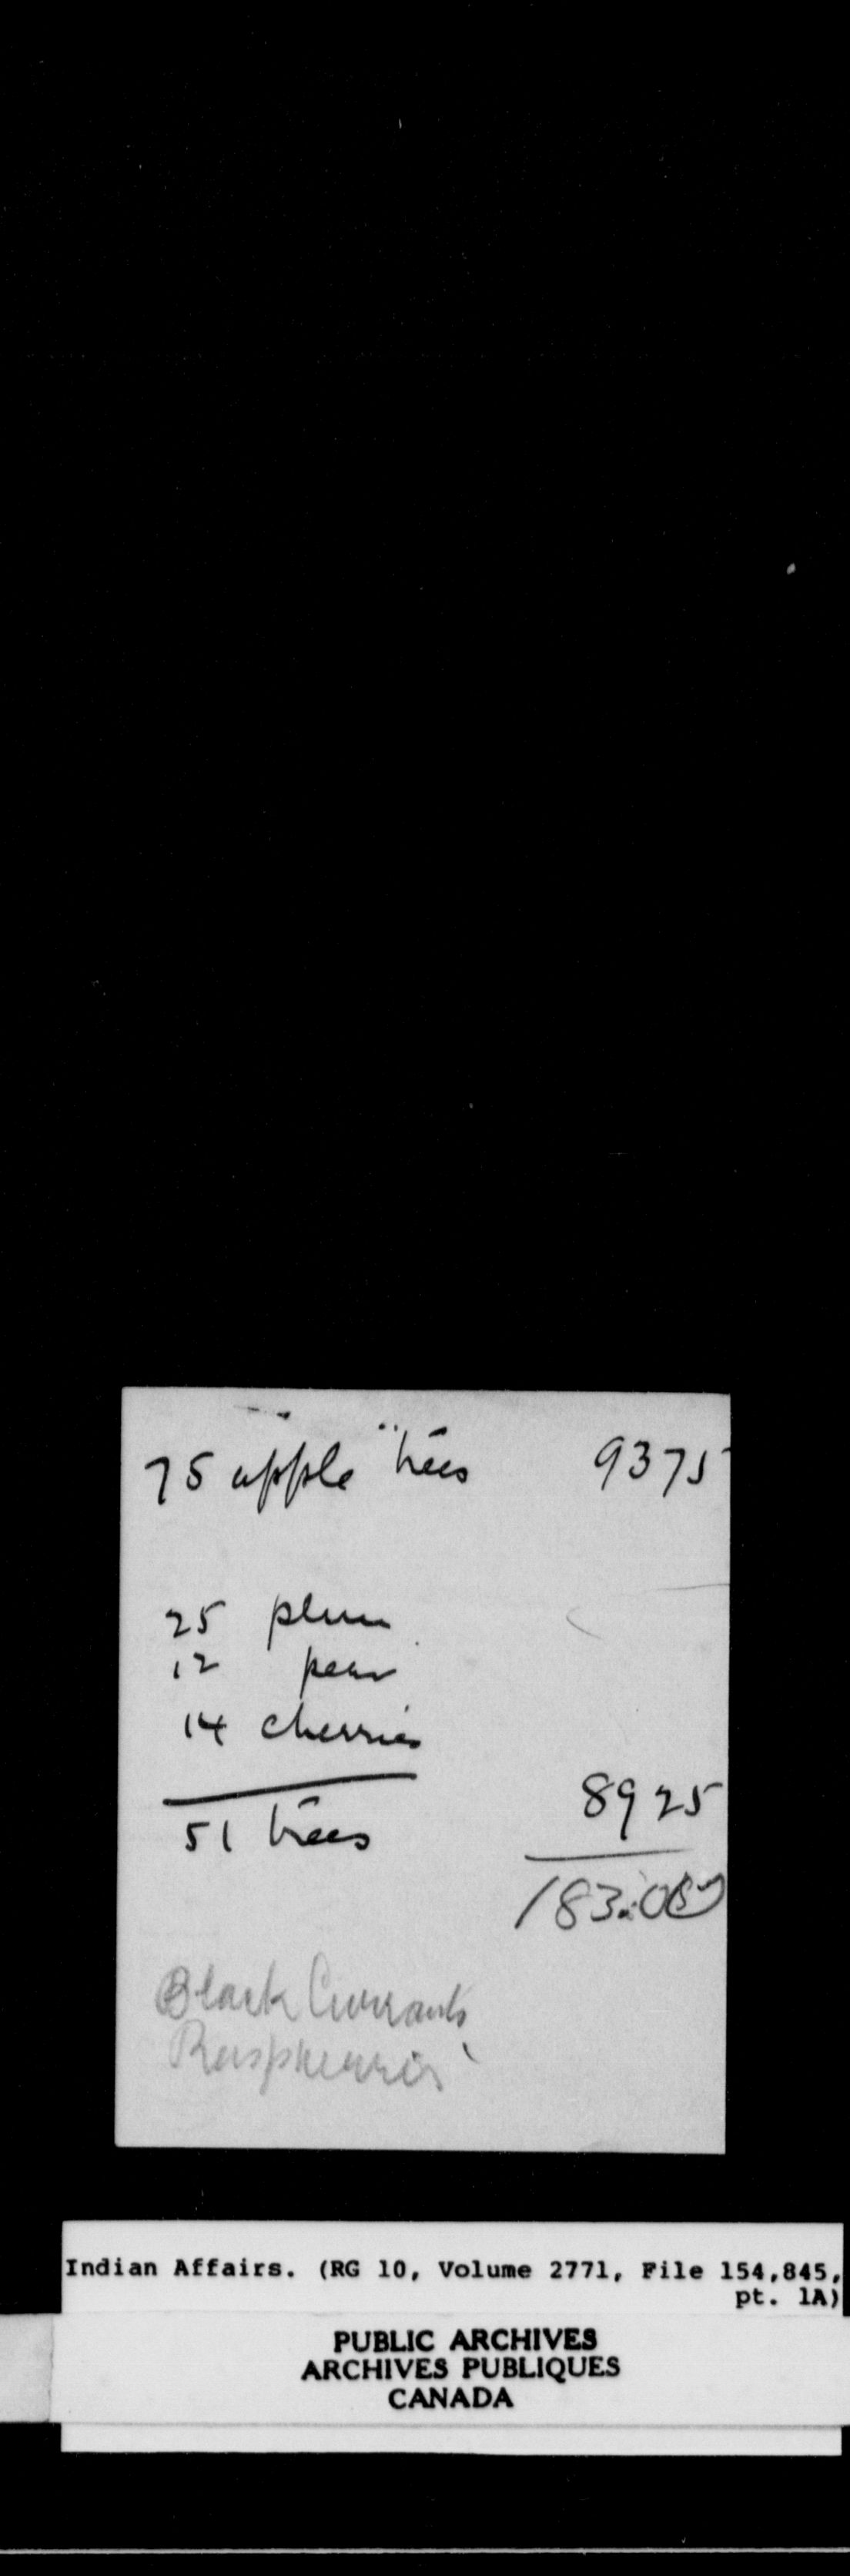 75 apple trees 9375
25 plum
12 pear
14 cherries
8925
51 trees
183.00
Black Currants
Raspberries
Indian Affairs. (RG 10, Volume 2771, File 154,845,
pt. 1A)
PUBLIC ARCHIVES
ARCHIVES PUBLIQUES
CANADA